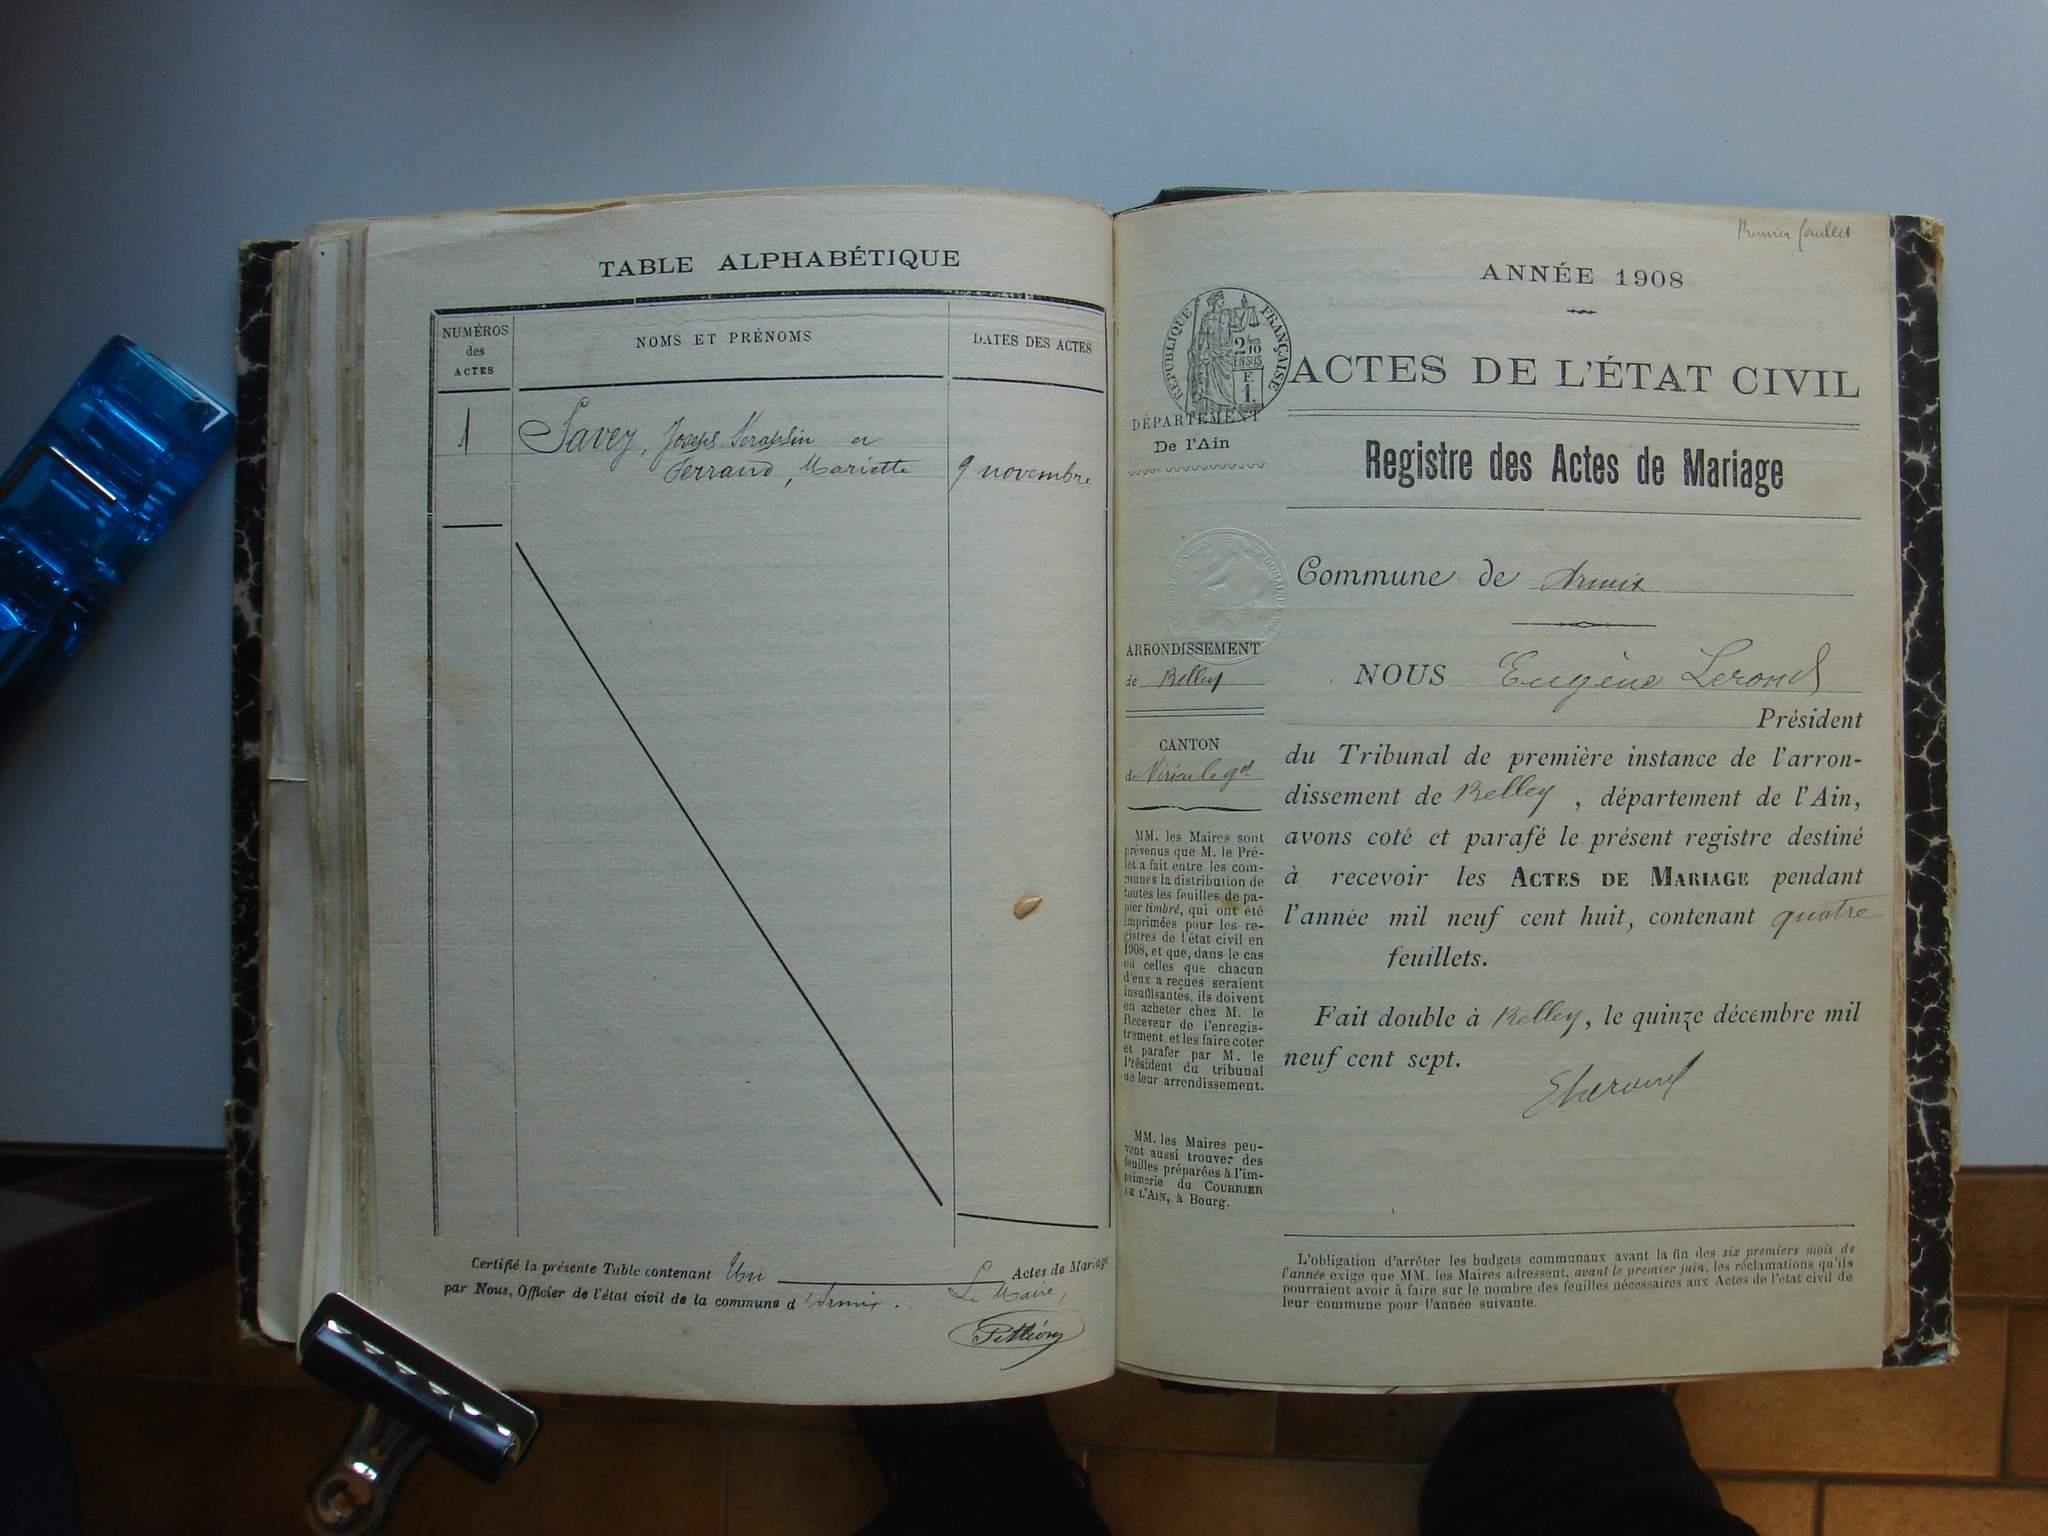 TABLE ALPHABÉTIQUE
NUMÉROS
des
ACTES
NOMS ET PRÉNOMS
DATES DES ACTES
1
Savey, Joseph Séraphin et
Ferrand, Mariette
9 novembre
Certifié la présente Table contenant Un Actes de Mariage
par Nous, Officier de l'état civil de la commune d'Armix.
Le Maire,
Premier feuillet
ANNÉE 1908
RÉPUBLIQUE FRANÇAISE
2/10
EN SUS
F.
1.
ACTES DE L'ÉTAT CIVIL
DÉPARTEMENT
De l'Ain
Registre des Actes de Mariage
Commune de Armix
ARRONDISSEMENT
de Belley
NOUS Eugène Lerond
Président
CANTON
de Virieu le gd
du Tribunal de première instance de l'arron-
dissement de Belley, département de l'Ain,
avons coté et parafé le présent registre destiné
à recevoir les ACTES DE MARIAGE pendant
l'année mil neuf cent huit, contenant quatre
feuillets.
Fait double à Belley, le quinze décembre mil
neuf cent sept.
MM. les Maires sont
prévenus que M. le Pré-
fet a fait entre les com-
munes la distribution de
toutes les feuilles de pa-
pier timbré, qui ont été
imprimées pour les re-
gistres de l'état civil en
1908, et que, dans le cas
où celles que chacun
d'eux a reçues seraient
insuffisantes, ils doivent
en acheter chez M. le
Receveur de l'enregis-
trement et les faire coter
et parafer par M. le
Président du tribunal
de leur arrondissement.
MM. les Maires peu-
vent aussi trouver des
feuilles préparées à l'im-
primerie du COURRIER
DE L'AIN, à Bourg.
L'obligation d'arrêter les budgets communaux avant la fin des six premiers mois de
l'année exige que MM. les Maires adressent, avant le premier juin, les réclamations qu'ils
pourraient avoir à faire sur le nombre des feuilles nécessaires aux Actes de l'état civil de
leur commune pour l'année suivante.